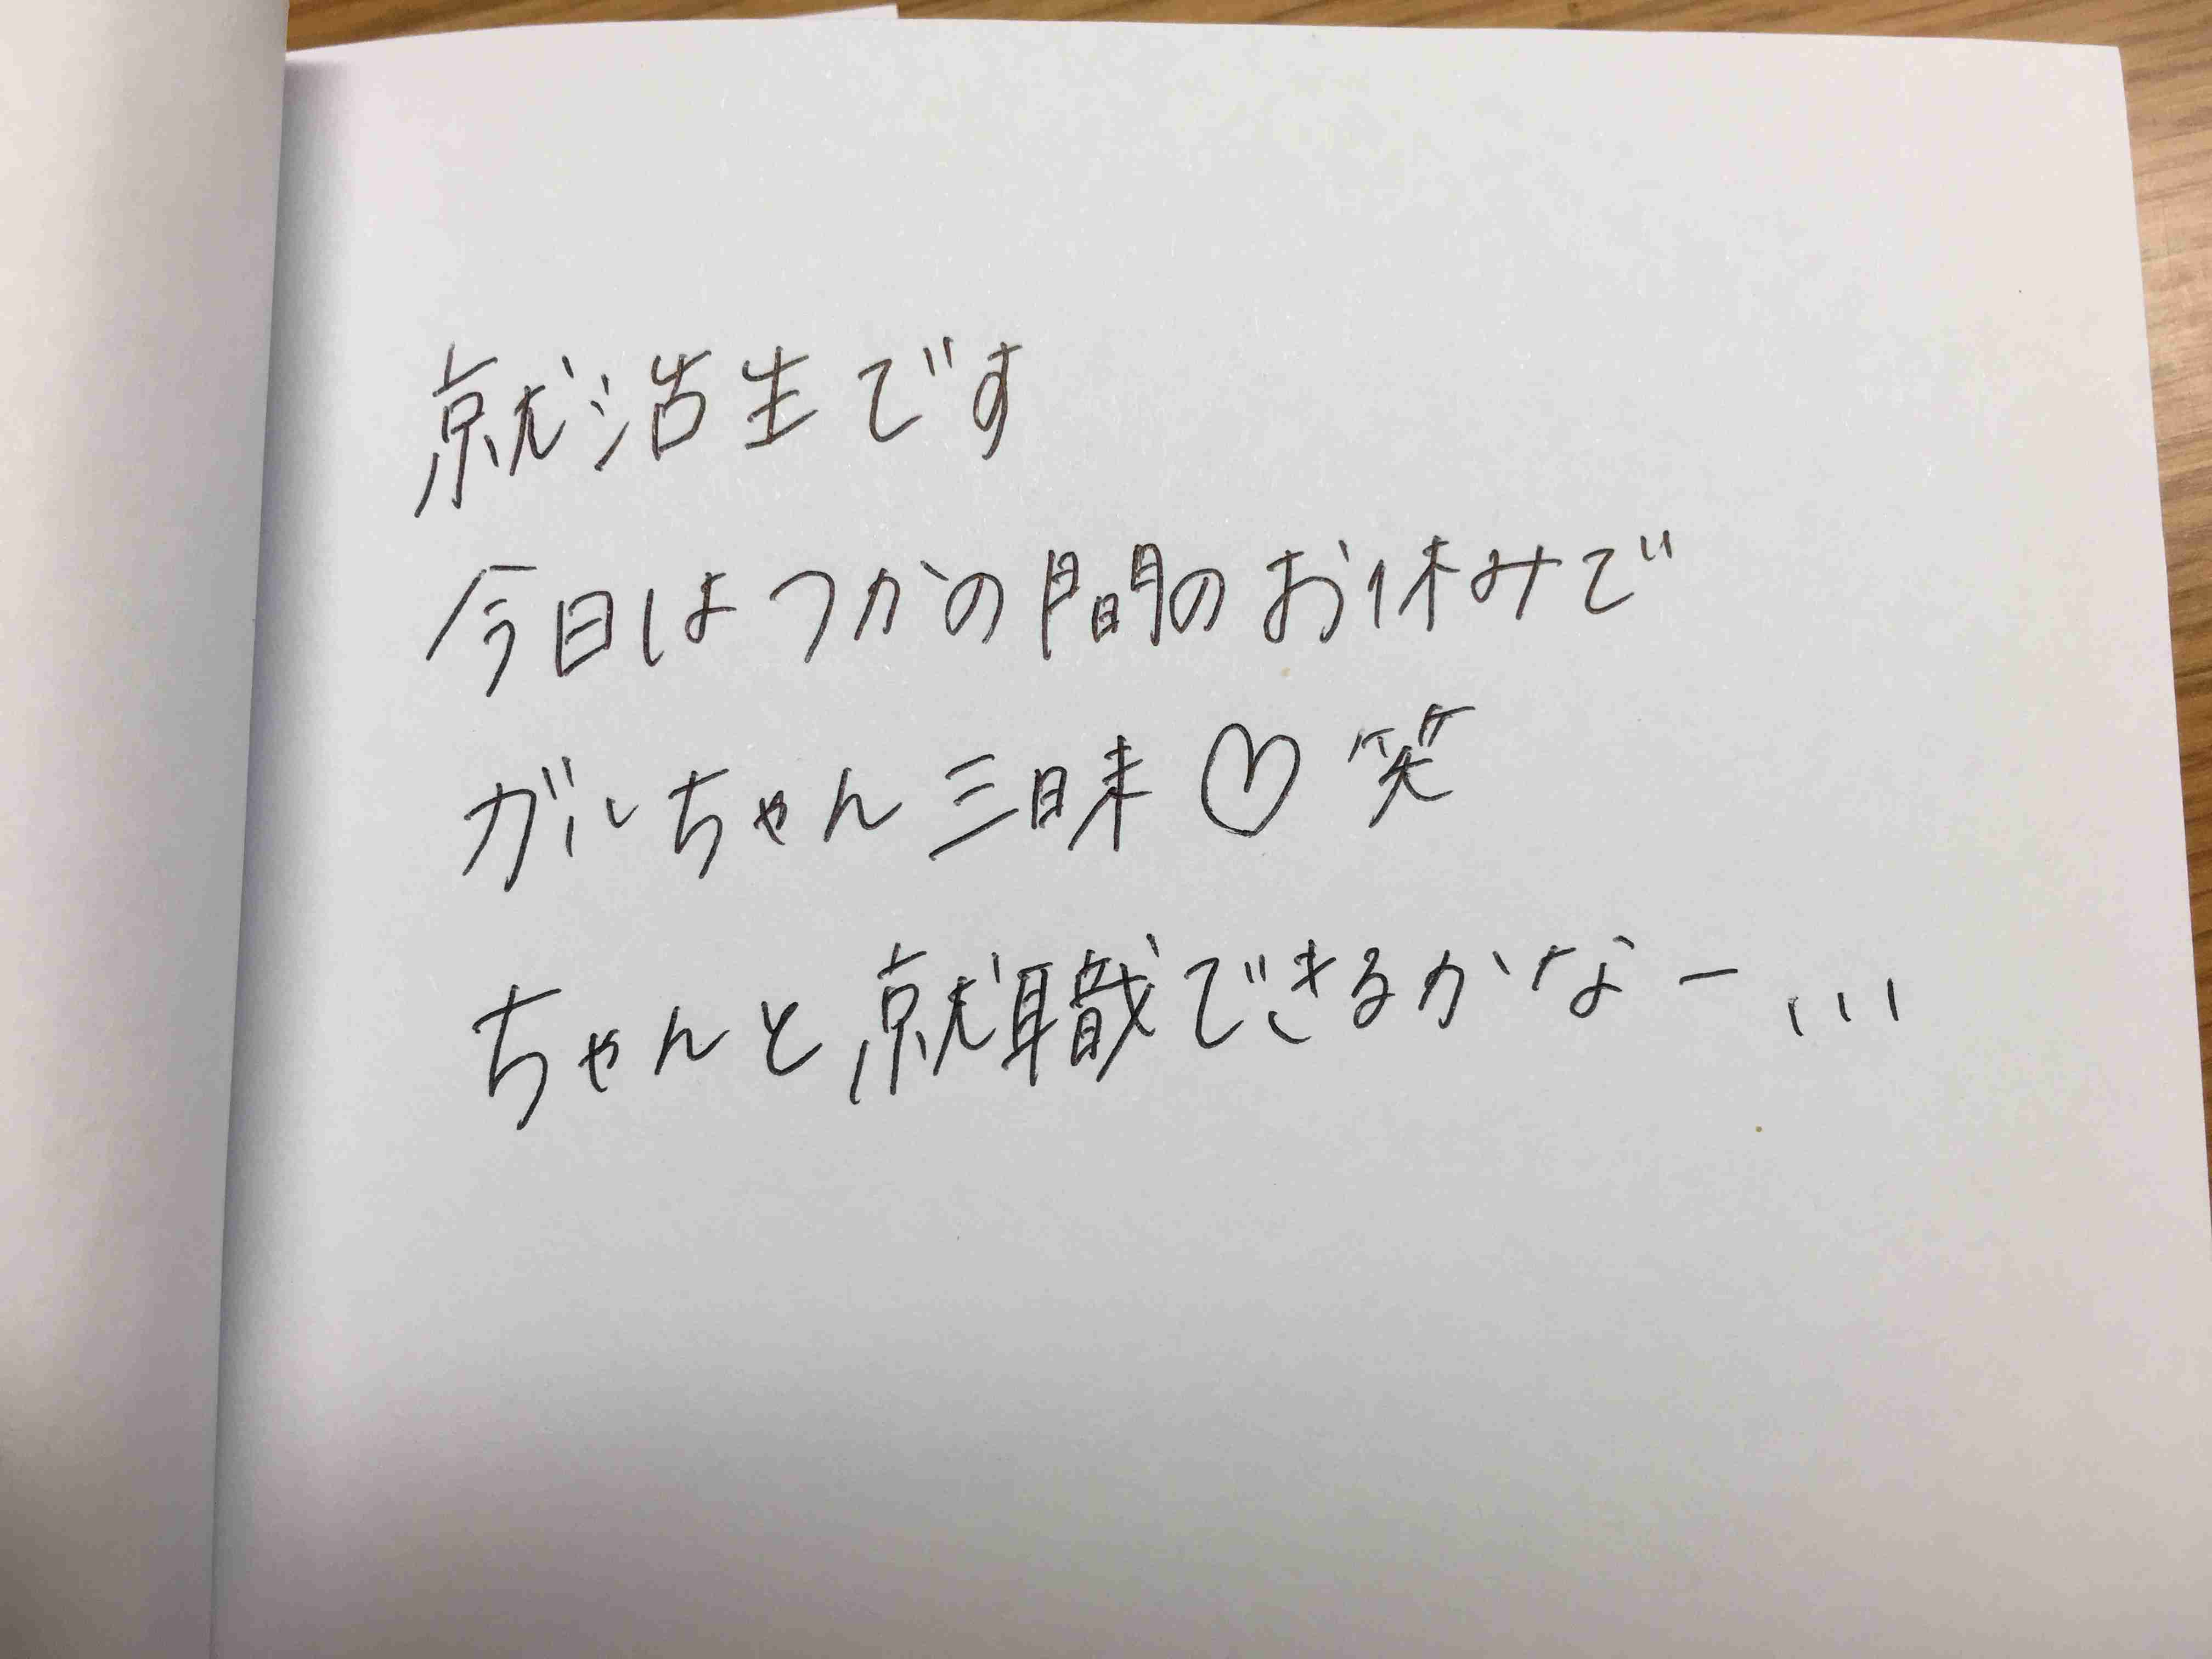 就活生です
今日はつかの間のお休みで
ガルちゃん三昧♡笑
ちゃんと就職できるかなー...